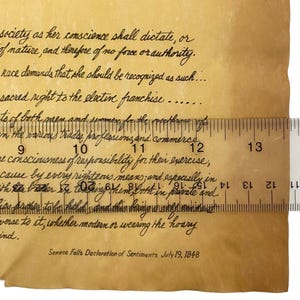 society as her conscience shall dictate, or
of nature, and therefore of no force or authority.
race demands that she should be recognized as such...
sacred right to the elective franchise ......
of both men and women to the overthrow of
in the various trades, professions, and commerce.
9 10 11 12 13
consciousness of responsibility for their exercise,
cause by every righteous means; and especially in
both in private and
to be held; and this being a self-evident
verse to it, whether modern or wearing the hoary
ind.
Seneca Falls Declaration of Sentiments July 19, 1848